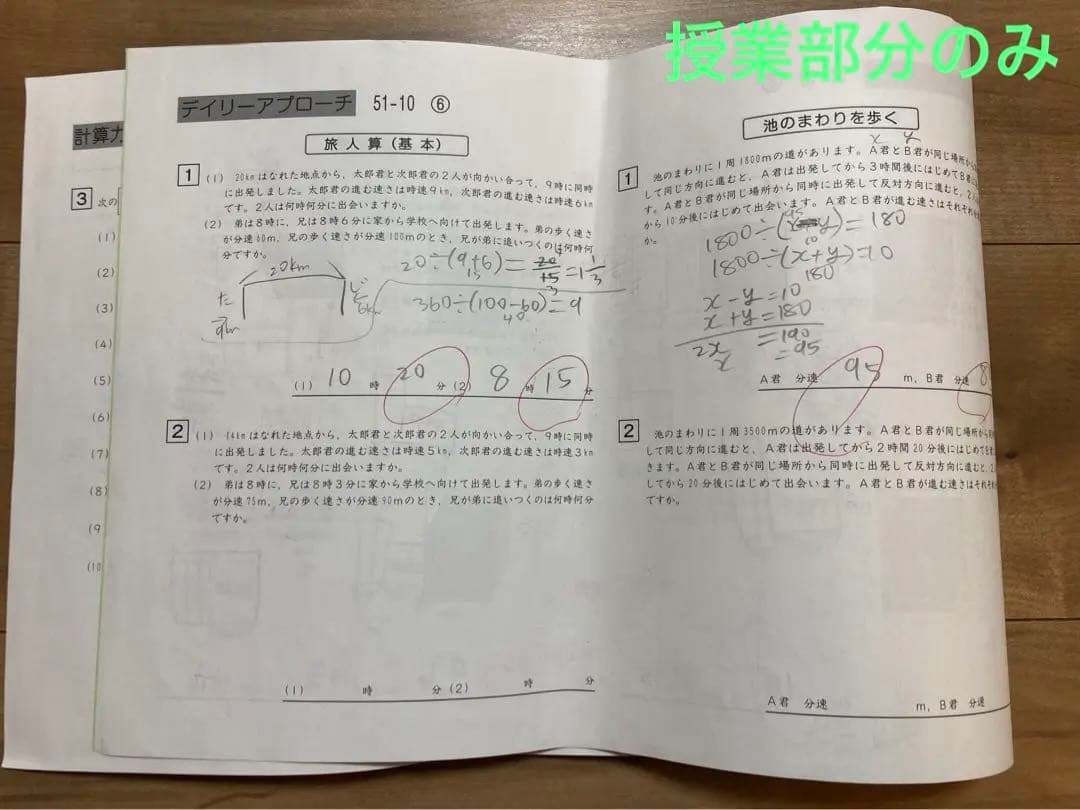 授業部分のみ
計算力
3 次の
(1)
(2)
(3)
(4)
(5)
(6)
(7)
(8)
(9
(10
デイリーアプローチ 51-10 ⑥
旅人算(基本)
1 (1) 20kmはなれた地点から、太郎君と次郎君の2人が向かい合って、9時に同時
に出発しました。太郎君の進む速さは時速9km、次郎君の進む速さは時速6km
です。2人は何時何分に出会いますか。
(2) 弟は8時に、兄は8時6分に家から学校へ向けて出発します。弟の歩く速さ
が分速60m、兄の歩く速さが分速100mのとき、兄が弟に追いつくのは何時何
分ですか。
20km
た
9km
じ
6km
20÷(9+6)=20/15=1 1/3
15
4
3
360÷(100-60)=9
40
(1) 10 時 20 分 (2) 8 時 15 分
2 (1) 14kmはなれた地点から、太郎君と次郎君の2人が向かい合って、9時に同時
に出発しました。太郎君の進む速さは時速5km、次郎君の進む速さは時速3km
です。2人は何時何分に出会いますか。
(2) 弟は8時に、兄は8時3分に家から学校へ向けて出発します。弟の歩く速さ
が分速75m、兄の歩く速さが分速90mのとき、兄が弟に追いつくのは何時何分
ですか。
(1) 時 分 (2) 時 分
池のまわりを歩く
x y
1 池のまわりに1周1800mの道があります。A君とB君が同じ場所から
して同じ方向に進むと、A君は出発してから3時間後にはじめてB君に
す。A君とB君が同じ場所から同時に出発して反対方向に進むと、2人
から10分後にはじめて出会います。A君とB君が進む速さはそれぞれ
か。
95
1800÷(x-y)=180
10
1800÷(x+y)=10
180
x-y=10
x+y=180
2x =190
x =95
A君 分速 95 m、B君 分速 8
2 池のまわりに1周3500mの道があります。A君とB君が同じ場所から
して同じ方向に進むと、A君は出発してから2時間20分後にはじめてB
きます。A君とB君が同じ場所から同時に出発して反対方向に進むと、2
してから20分後にはじめて出会います。A君とB君が進む速さはそれぞれ
ですか。
A君 分速 m、B君 分速